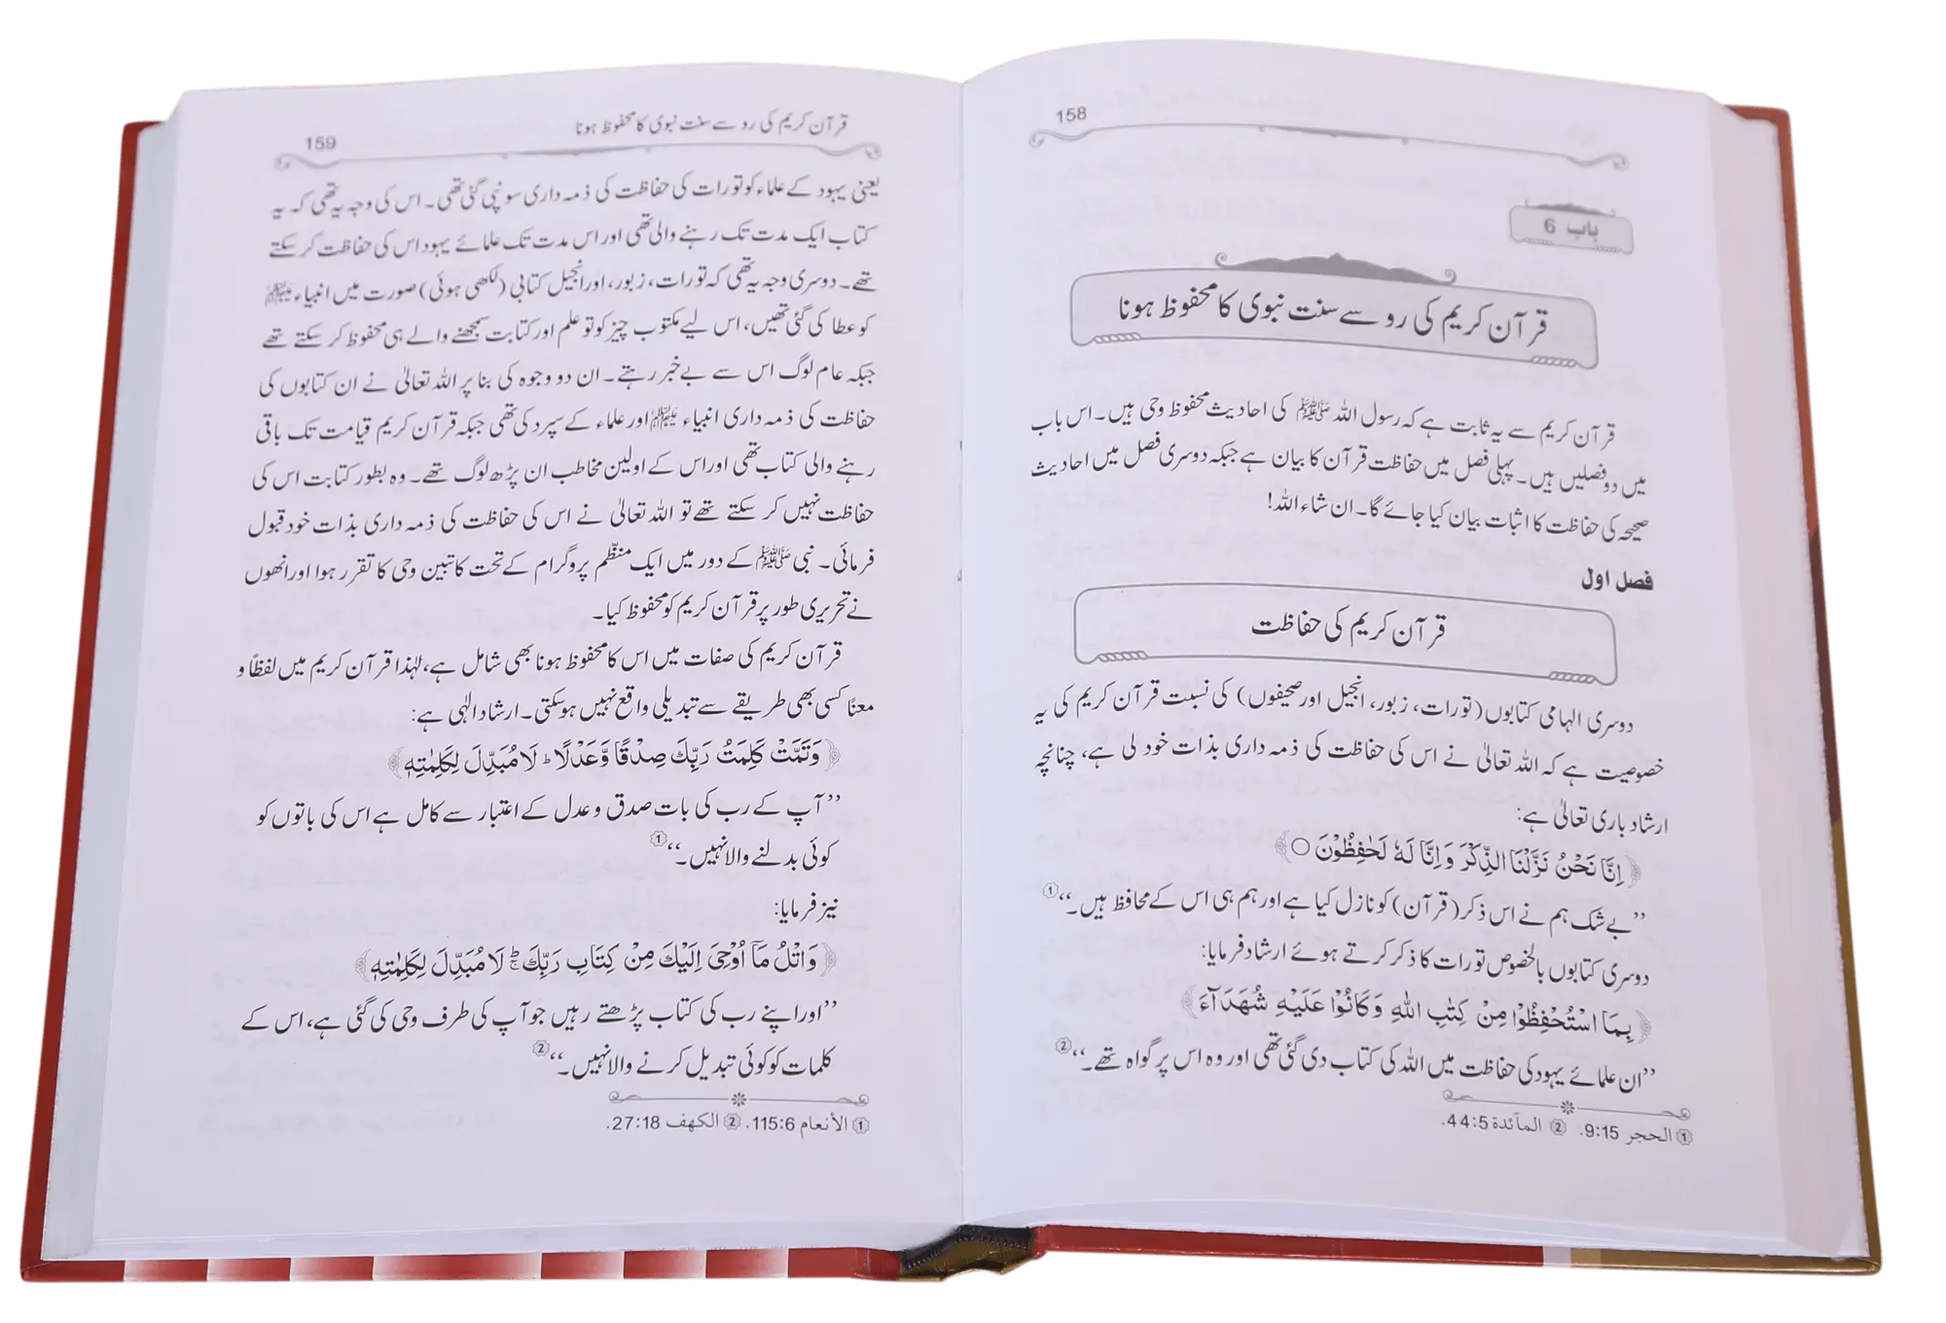 158
باب 6
قرآن کریم کی رو سے سنت نبوی کا محفوظ ہونا
قرآن کریم سے یہ ثابت ہے کہ رسول اللہ ﷺ کی احادیث محفوظ وحی ہیں۔ اس باب
میں دو فصلیں ہیں۔ پہلی فصل میں حفاظت قرآن کا بیان ہے جبکہ دوسری فصل میں احادیث
صحیحہ کی حفاظت کا اثبات بیان کیا جائے گا۔ ان شاء اللہ!
فصل اول
قرآن کریم کی حفاظت
دوسری الہامی کتابوں (تورات، زبور، انجیل اور صحیفوں) کی نسبت قرآن کریم کی یہ
خصوصیت ہے کہ اللہ تعالیٰ نے اس کی حفاظت کی ذمہ داری بذات خود لی ہے، چنانچہ
ارشاد باری تعالیٰ ہے:
﴿اِنَّا نَحْنُ نَزَّلْنَا الذِّكْرَ وَاِنَّا لَهٗ لَحٰفِظُوْنَ ○﴾
’’بے شک ہم نے اس ذکر (قرآن) کو نازل کیا ہے اور ہم ہی اس کے محافظ ہیں۔‘‘ ①
دوسری کتابوں بالخصوص تورات کا ذکر کرتے ہوئے ارشاد فرمایا:
﴿بِمَا اسْتُحْفِظُوْا مِنْ كِتٰبِ اللّٰهِ وَكَانُوْا عَلَيْهِ شُهَدَآءَ﴾
’’ان علمائے یہود کی حفاظت میں اللہ کی کتاب دی گئی تھی اور وہ اس پر گواہ تھے۔‘‘ ②
① الحجر 9:15. ② المآئدة 44:5.
قرآن کریم کی رو سے سنت نبوی کا محفوظ ہونا 159
یعنی یہود کے علماء کو تورات کی حفاظت کی ذمہ داری سونپی گئی تھی۔ اس کی وجہ یہ تھی کہ یہ
کتاب ایک مدت تک رہنے والی تھی اور اس مدت تک علمائے یہود اس کی حفاظت کر سکتے
تھے۔ دوسری وجہ یہ تھی کہ تورات، زبور، اور انجیل کتابی (لکھی ہوئی) صورت میں انبیاء علیہم السلام
کو عطا کی گئی تھیں، اس لیے مکتوب چیز کو تو علم اور کتابت سمجھنے والے ہی محفوظ کر سکتے تھے
جبکہ عام لوگ اس سے بے خبر رہتے۔ ان دو وجوہ کی بنا پر اللہ تعالیٰ نے ان کتابوں کی
حفاظت کی ذمہ داری انبیاء علیہم السلام اور علماء کے سپرد کی تھی جبکہ قرآن کریم قیامت تک باقی
رہنے والی کتاب تھی اور اس کے اولین مخاطب ان پڑھ لوگ تھے۔ وہ بطور کتابت اس کی
حفاظت نہیں کر سکتے تھے تو اللہ تعالیٰ نے اس کی حفاظت کی ذمہ داری بذات خود قبول
فرمائی۔ نبی ﷺ کے دور میں ایک منظّم پروگرام کے تحت کاتبین وحی کا تقرر ہوا اور انھوں
نے تحریری طور پر قرآن کریم کو محفوظ کیا۔
قرآن کریم کی صفات میں اس کا محفوظ ہونا بھی شامل ہے، لہٰذا قرآن کریم میں لفظًا و
معنًا کسی بھی طریقے سے تبدیلی واقع نہیں ہو سکتی۔ ارشاد الٰہی ہے:
﴿وَتَمَّتْ كَلِمَتُ رَبِّكَ صِدْقًا وَّعَدْلًا ؕ لَا مُبَدِّلَ لِكَلِمٰتِهٖ﴾
’’آپ کے رب کی بات صدق و عدل کے اعتبار سے کامل ہے اس کی باتوں کو
کوئی بدلنے والا نہیں۔‘‘ ①
نیز فرمایا:
﴿وَاتْلُ مَآ اُوْحِيَ اِلَيْكَ مِنْ كِتَابِ رَبِّكَ ۚ لَا مُبَدِّلَ لِكَلِمٰتِهٖ﴾
’’اور اپنے رب کی کتاب پڑھتے رہیں جو آپ کی طرف وحی کی گئی ہے، اس کے
کلمات کو کوئی تبدیل کرنے والا نہیں۔‘‘ ②
① الأنعام 115:6. ② الكهف 27:18.